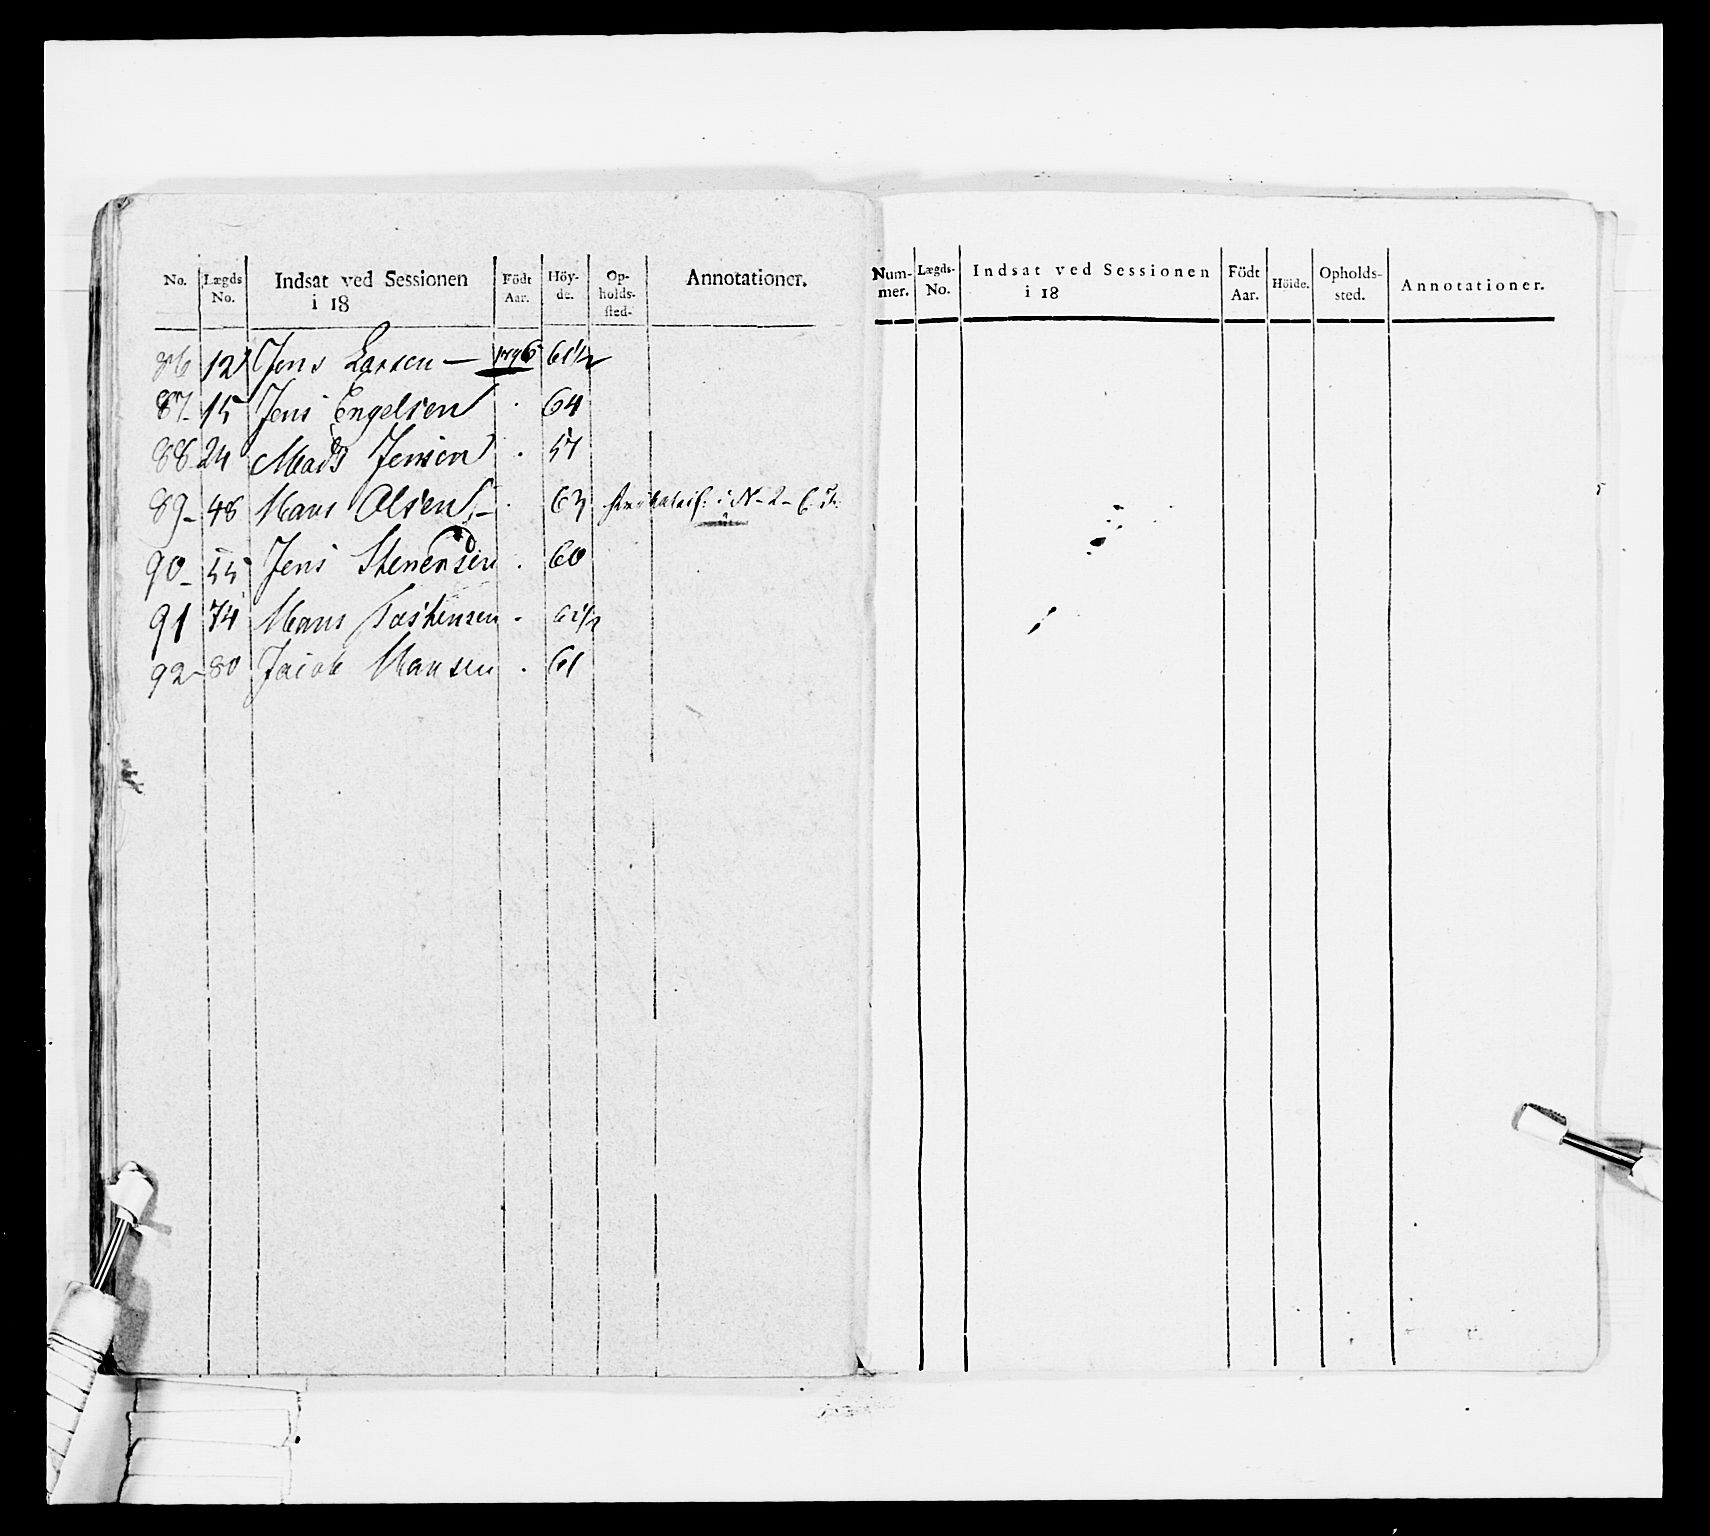 No. Lægds No. Indsat ved Sessionen i 18 Födt Aar. Höy-de. Op-holds-sted. Annotationer.
86 12 Jens Larsen — 1796 61½
87 15 Jens Engelsen · 64
88 24 Mads Jensen · 57
89 48 Hans Olsen · 63 i N-2-
90 55 Jens Stenersen · 60
91 74 Hans Torstensen · 61½
92 80 Jacob Hansen · 61
Num-mer. Lægds-No. Indsat ved Sessionen i 18 Födt Aar. Höide. Opholds-sted. Annotationer.